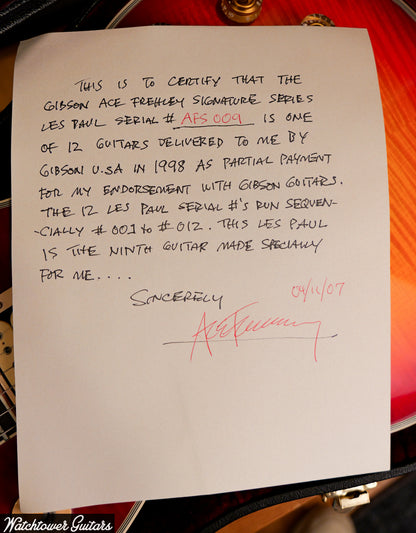 THIS IS TO CERTIFY THAT THE
GIBSON ACE FREHLEY SIGNATURE SERIES
LES PAUL SERIAL # AFS 009 IS ONE
OF 12 GUITARS DELIVERED TO ME BY
GIBSON U.S.A IN 1998 AS PARTIAL PAYMENT
FOR MY ENDORSEMENT WITH GIBSON GUITARS.
THE 12 LES PAUL SERIAL #'S RUN SEQUEN-
-CIALLY # 001 to # 012. THIS LES PAUL
IS THE NINTH GUITAR MADE SPECIALLY
FOR ME....
SINCERELY
04/11/07
Ace Frehley
Watchtower Guitars